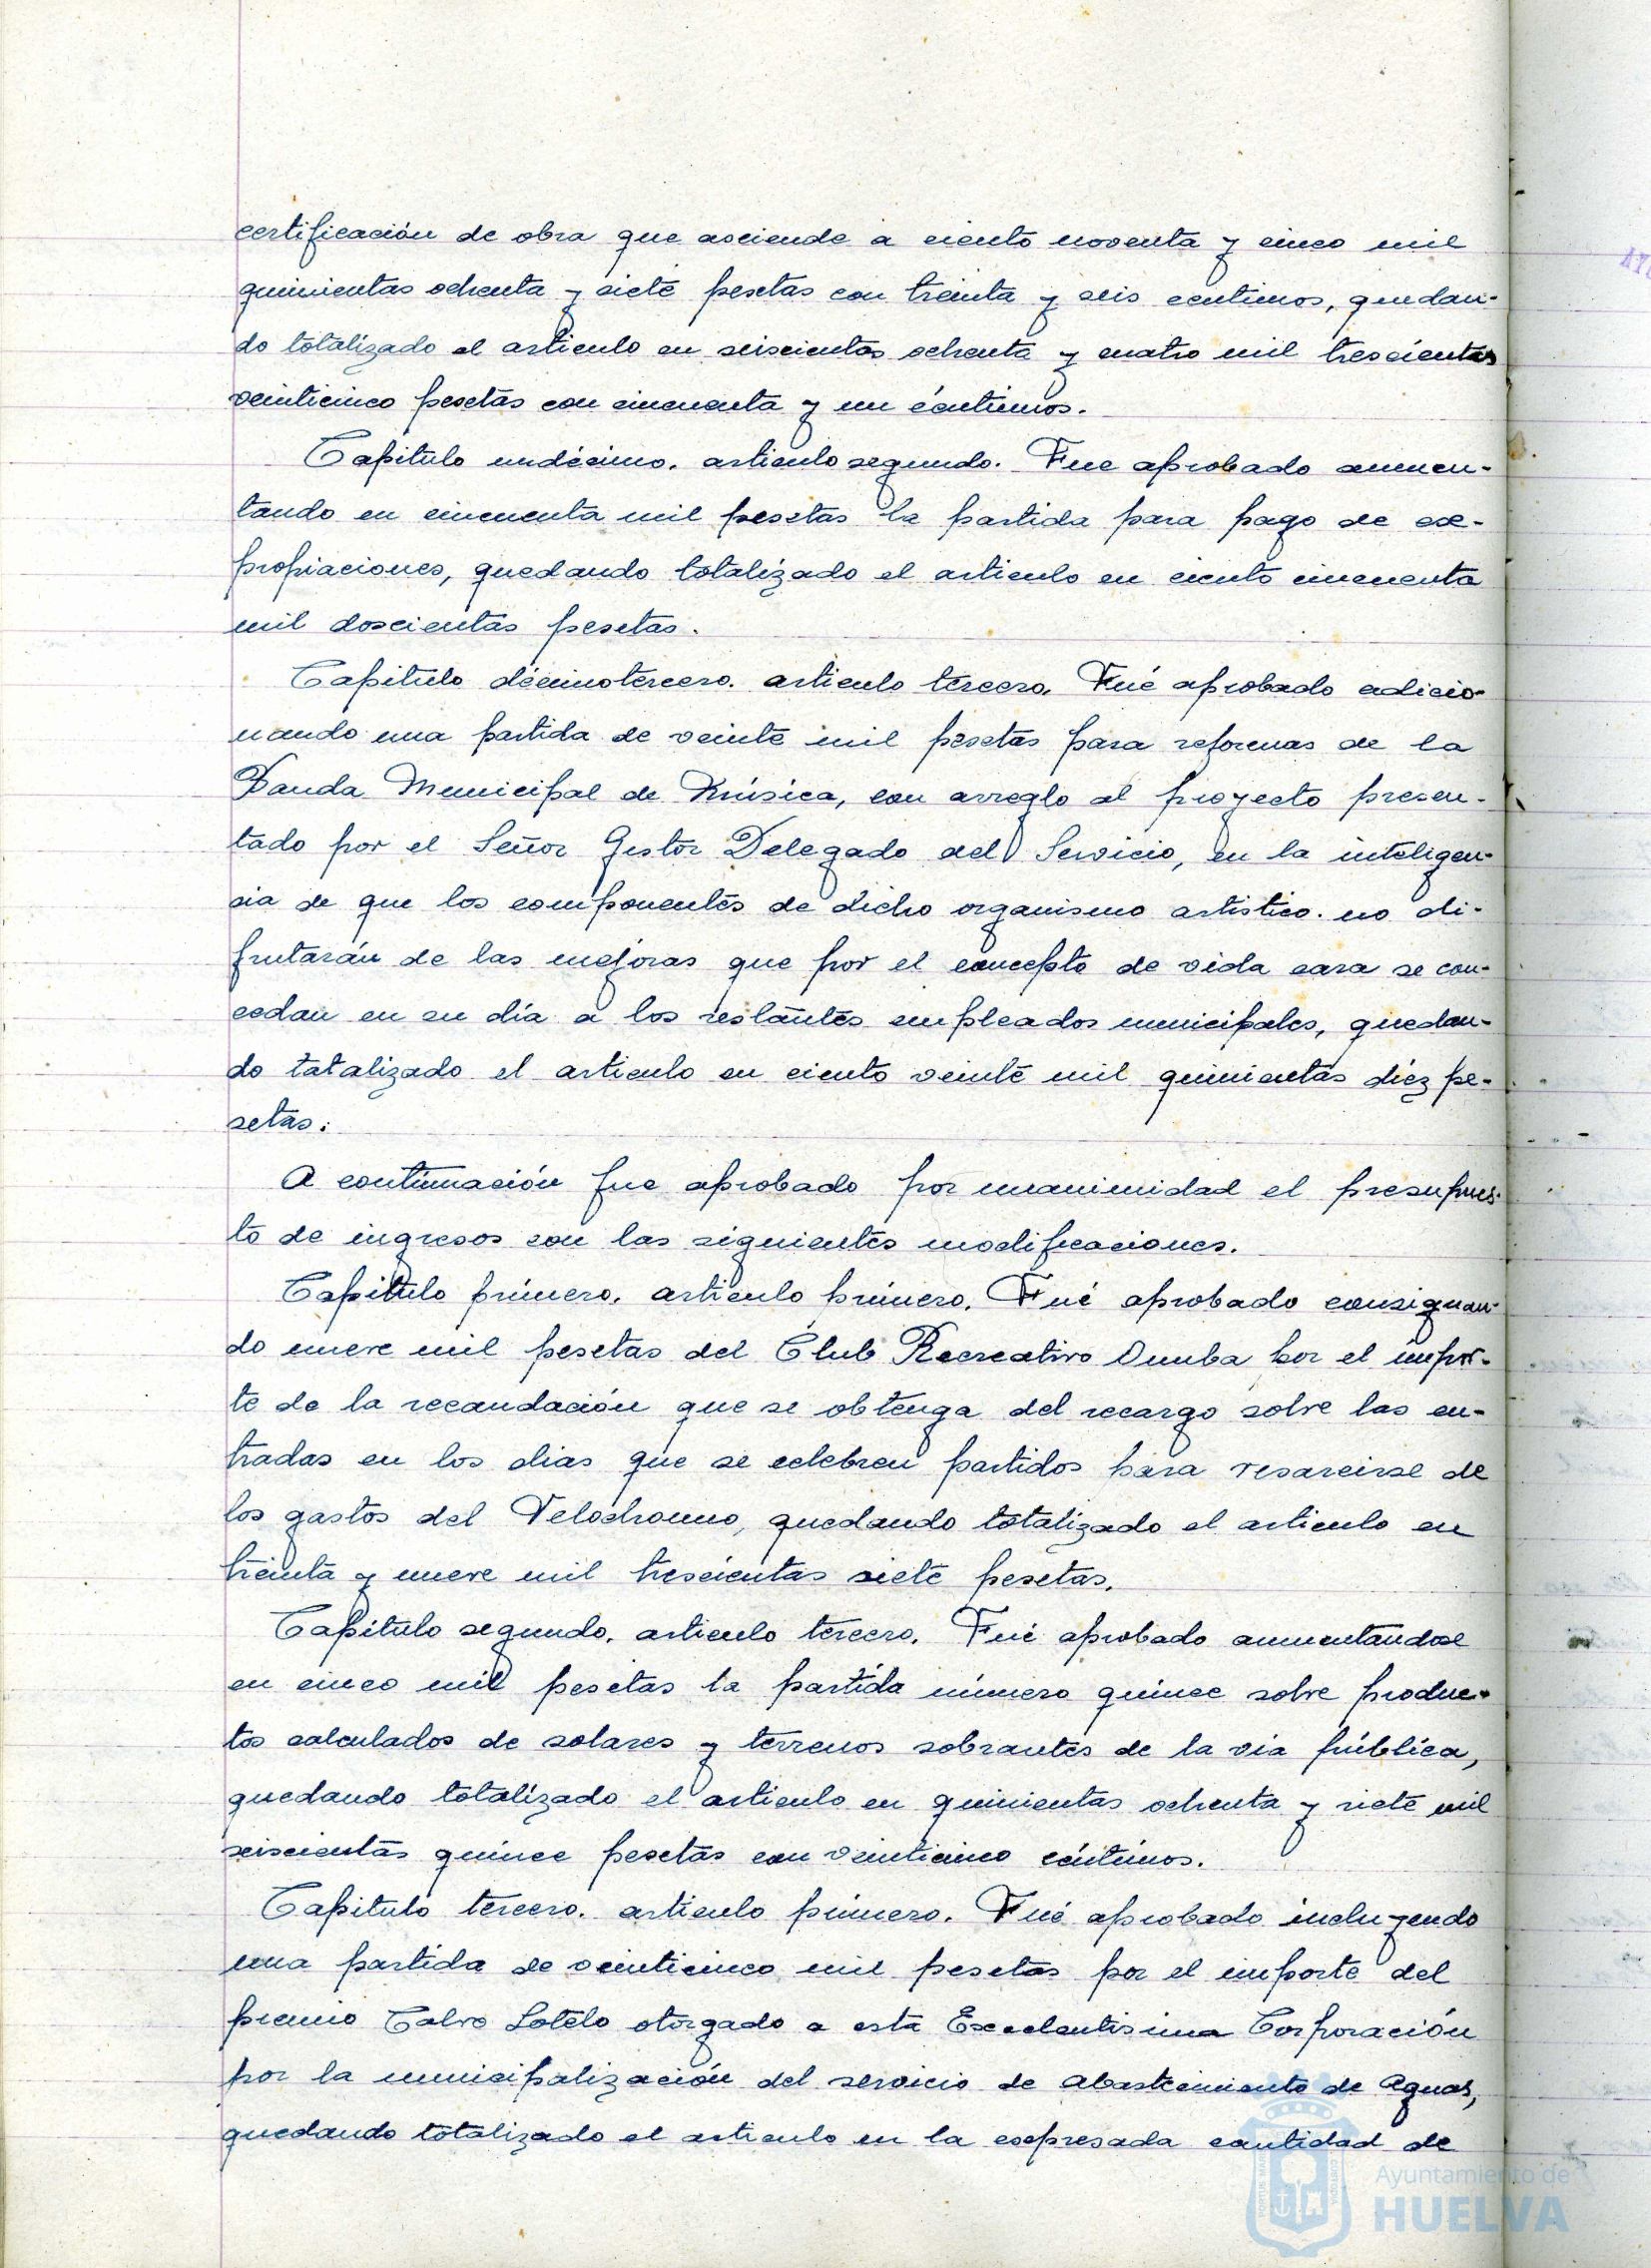 certificación de obra que asciende a ciento noventa y cinco mil
quinientas ochenta y siete pesetas con treinta y seis centimos, quedan-
do totalizado el articulo en seiscientas ochenta y cuatro mil trescientas
veinticinco pesetas con cincuenta y un céntimos.
Capitulo undécimo. articulo segundo. Fue aprobado aumen-
tando en cincuenta mil pesetas la partida para pago de ex-
propiaciones, quedando totalizado el articulo en ciento cincuenta
mil doscientas pesetas.
Capitulo décimotercero. articulo tercero. Fué aprobado adicio-
nando una partida de veinte mil pesetas para reformas de la
Banda Municipal de Música, con arreglo al proyecto presen-
tado por el Señor Gestor Delegado del Servicio, en la inteligen-
cia de que los componentes de dicho organismo artistico. no di-
frutarán de las mejoras que por el concepto de vida cara se con-
cedan en su día a los restantes empleados municipales, quedan-
do totalizado el articulo en ciento veinte mil quinientas diéz pe-
setas.
A continuación fue aprobado por unanimidad el presupues-
to de ingresos con las siguientes modificaciones.
Capitulo primero. articulo primero. Fué aprobado consignan-
do nueve mil pesetas del Club Recreativo Onuba por el impor-
te de la recaudación que se obtenga del recargo sobre las en-
tradas en los dias que se celebren partidos para resarcirse de
los gastos del Velodromo, quedando totalizado el articulo en
treinta y nueve mil trescientas siete pesetas.
Capítulo segundo. articulo tercero. Fué aprobado aumentandose
en cinco mil pesetas la partida número quince sobre produc-
tos calculados de solares y terrenos sobrantes de la via pública,
quedando totalizado el articulo en quinientas ochenta y siete mil
seiscientas quince pesetas con veinticinco céntimos.
Capitulo tercero. articulo primero. Fué aprobado incluyendo
una partida de veinticinco mil pesetas por el importe del
premio Calvo Sotelo otorgado a esta Excelentisima Corporación
por la municipalización del servicio de abastecimiento de Aguas,
quedando totalizado el articulo en la expresada cantidad de
Ayuntamiento de
HUELVA